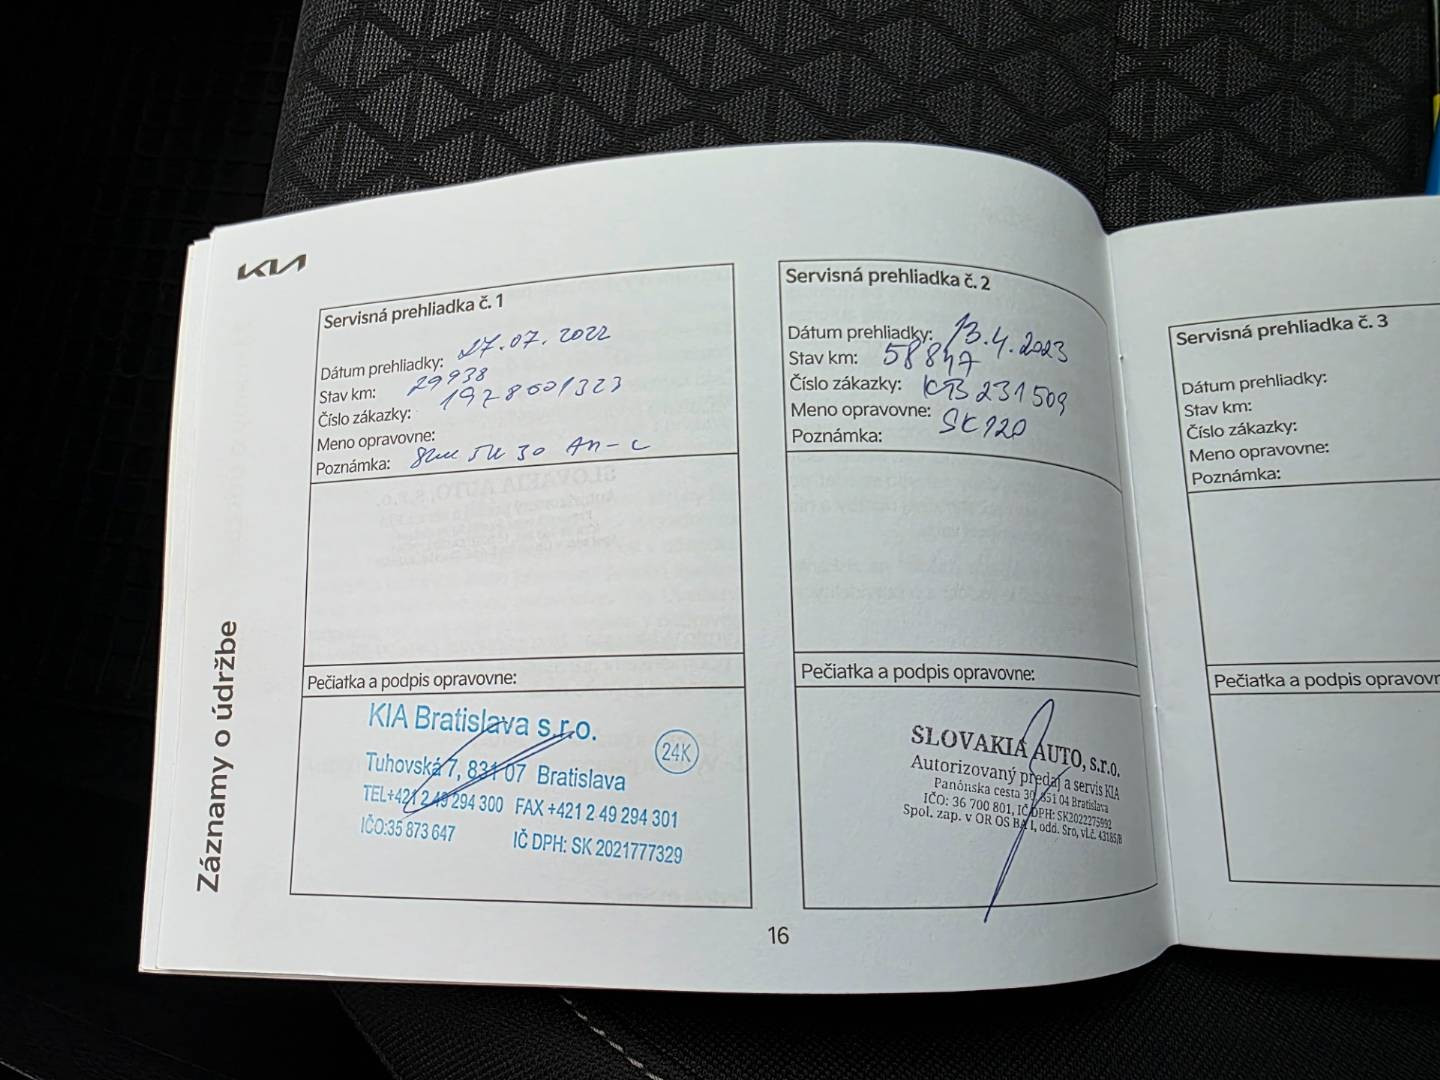 KIA
Záznamy o údržbe
Servisná prehliadka č. 1
Dátum prehliadky: 27.07.2022
Stav km: 29938
Číslo zákazky: 1978601323
Meno opravovne:
Poznámka: 30
Pečiatka a podpis opravovne:
KIA Bratislava s.r.o.
24K
Tuhovská 7, 831 07 Bratislava
TEL+421 2 49 294 300 FAX +421 2 49 294 301
IČO:35 873 647 IČ DPH: SK 2021777329
Servisná prehliadka č. 2
Dátum prehliadky: 13.4.2023
Stav km: 58847
Číslo zákazky: KB231509
Meno opravovne: SK120
Poznámka:
Pečiatka a podpis opravovne:
SLOVAKIA AUTO, s.r.o.
Autorizovaný predaj a servis KIA
Panónska cesta 30, 851 04 Bratislava
IČO: 36 700 801, IČ DPH: SK2022275992
Spol. zap. v OR OS BA I, odd. Sro, vl.č. 43185/B
16
Servisná prehliadka č. 3
Dátum prehliadky:
Stav km:
Číslo zákazky:
Meno opravovne:
Poznámka:
Pečiatka a podpis opravovn